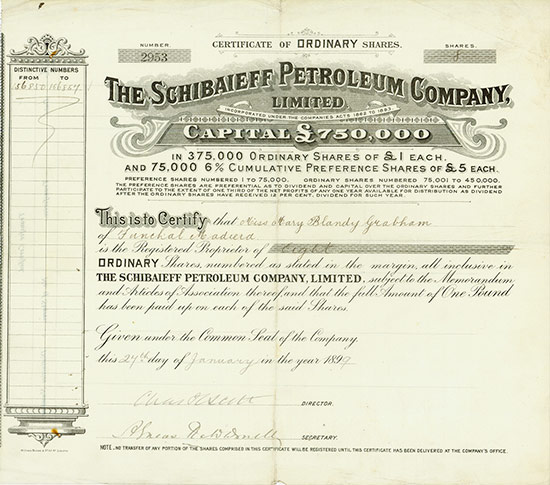 NUMBER
2953
CERTIFICATE OF ORDINARY SHARES.
SHARES.
8
DISTINCTIVE NUMBERS
FROM TO
THE SCHIBAIEFF PETROLEUM COMPANY,
LIMITED.
INCORPORATED UNDER THE COMPANIES ACTS 1862 TO 1893
CAPITAL £750,000
IN 375,000 ORDINARY SHARES OF £1 EACH.
AND 75,000 6% CUMULATIVE PREFERENCE SHARES OF £5 EACH.
PREFERENCE SHARES NUMBERED 1 TO 75,000. ORDINARY SHARES NUMBERED 75,001 TO 450,000.
THE PREFERENCE SHARES ARE PREFERENTIAL AS TO DIVIDEND AND CAPITAL OVER THE ORDINARY SHARES AND FURTHER
PARTICIPATE TO THE EXTENT OF ONE THIRD OF THE NET PROFITS OF ANY ONE YEAR AVAILABLE FOR DISTRIBUTION AS DIVIDEND
AFTER THE ORDINARY SHARES HAVE RECEIVED 12 PER CENT. DIVIDEND FOR SUCH YEAR.
This is to Certify that Miss Mary Blandy Grabham
of Funchal Madeira
is the Registered Proprietor of Eight
ORDINARY Shares, numbered as stated in the margin, all inclusive in
THE SCHIBAIEFF PETROLEUM COMPANY, LIMITED, subject to the Memorandum
and Articles of Association thereof, and that the full Amount of One Pound
has been paid up on each of the said Shares.
Given under the Common Seal of the Company.
this 27th day of January in the year 1897
DIRECTOR.
SECRETARY.
NOTE.‚NO TRANSFER OF ANY PORTION OF THE SHARES COMPRISED IN THIS CERTIFICATE WILL BE REGISTERED UNTIL THIS CERTIFICATE HAS BEEN DELIVERED AT THE COMPANY'S OFFICE.